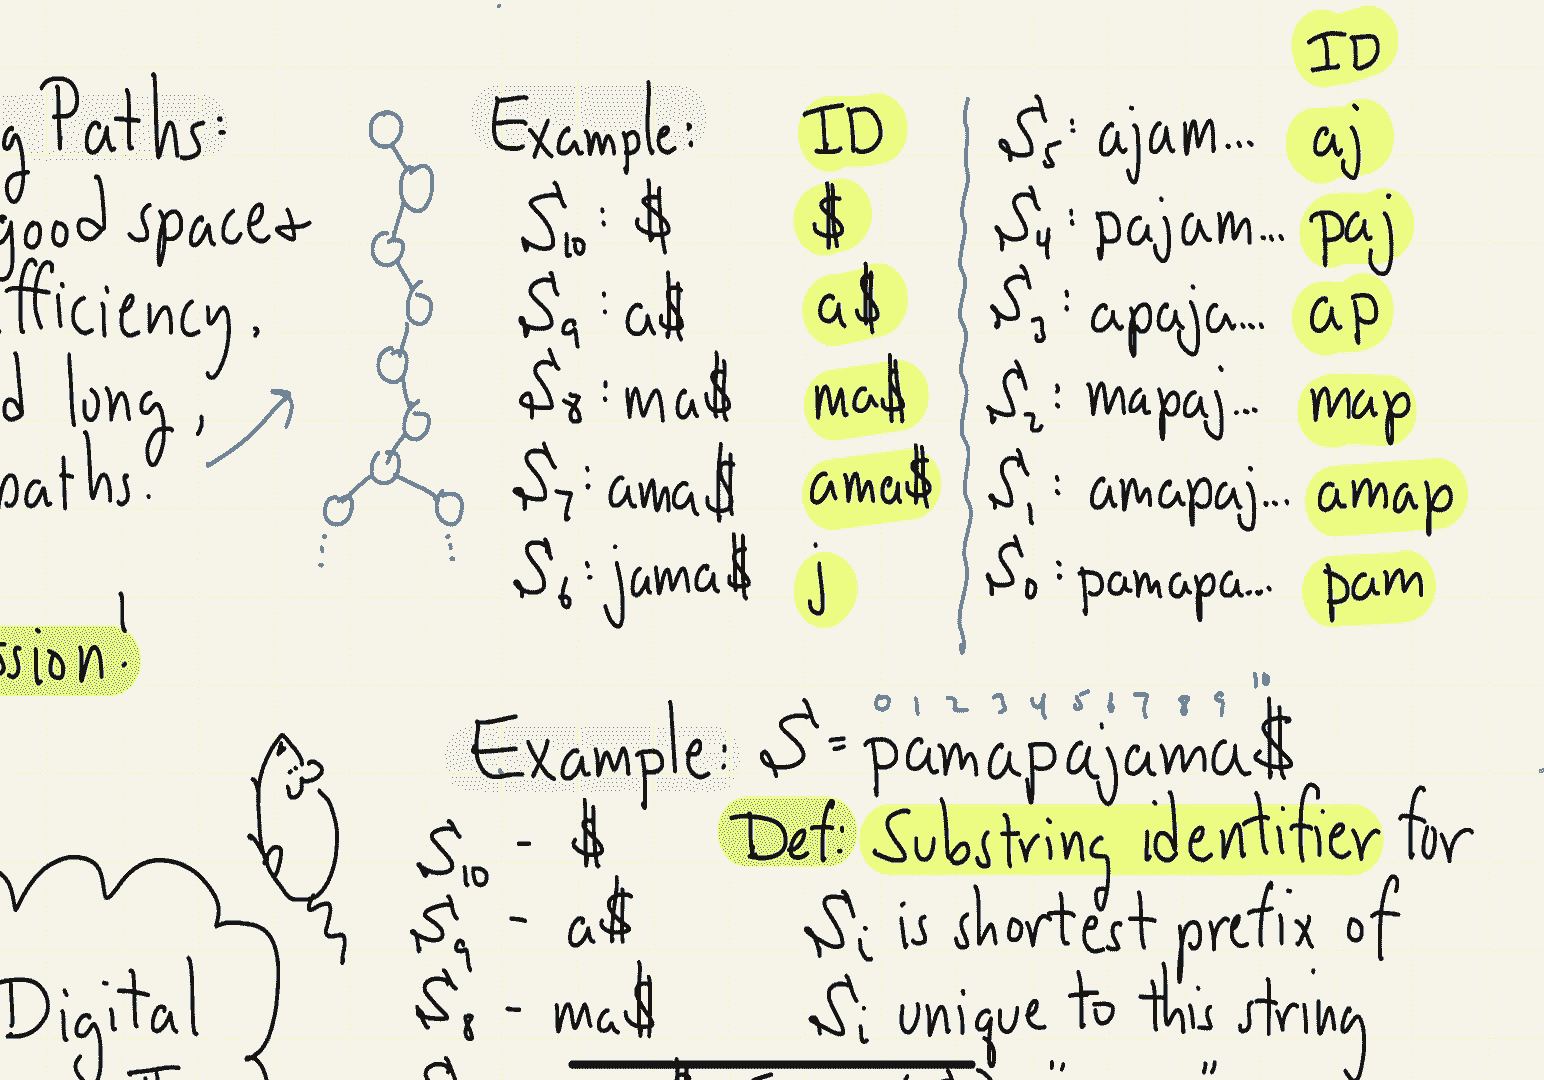 g Paths:
good space +
fficiency,
d long,
paths.
ssion:
Digital
Example: ID
S10: $ $
S9: a$ a$
S8: ma$ ma$
S7: ama$ ama$
S6: jama$ j
ID
S5: ajam... aj
S4: pajam... paj
S3: apaja... ap
S2: mapaj... map
S1: amapaj... amap
S0: pamapa... pam
0 1 2 3 4 5 6 7 8 9 10
Example: S = pamapajama$
S10 - $
S9 - a$
S8 - ma$
Def: Substring identifier for
Si is shortest prefix of
Si unique to this string